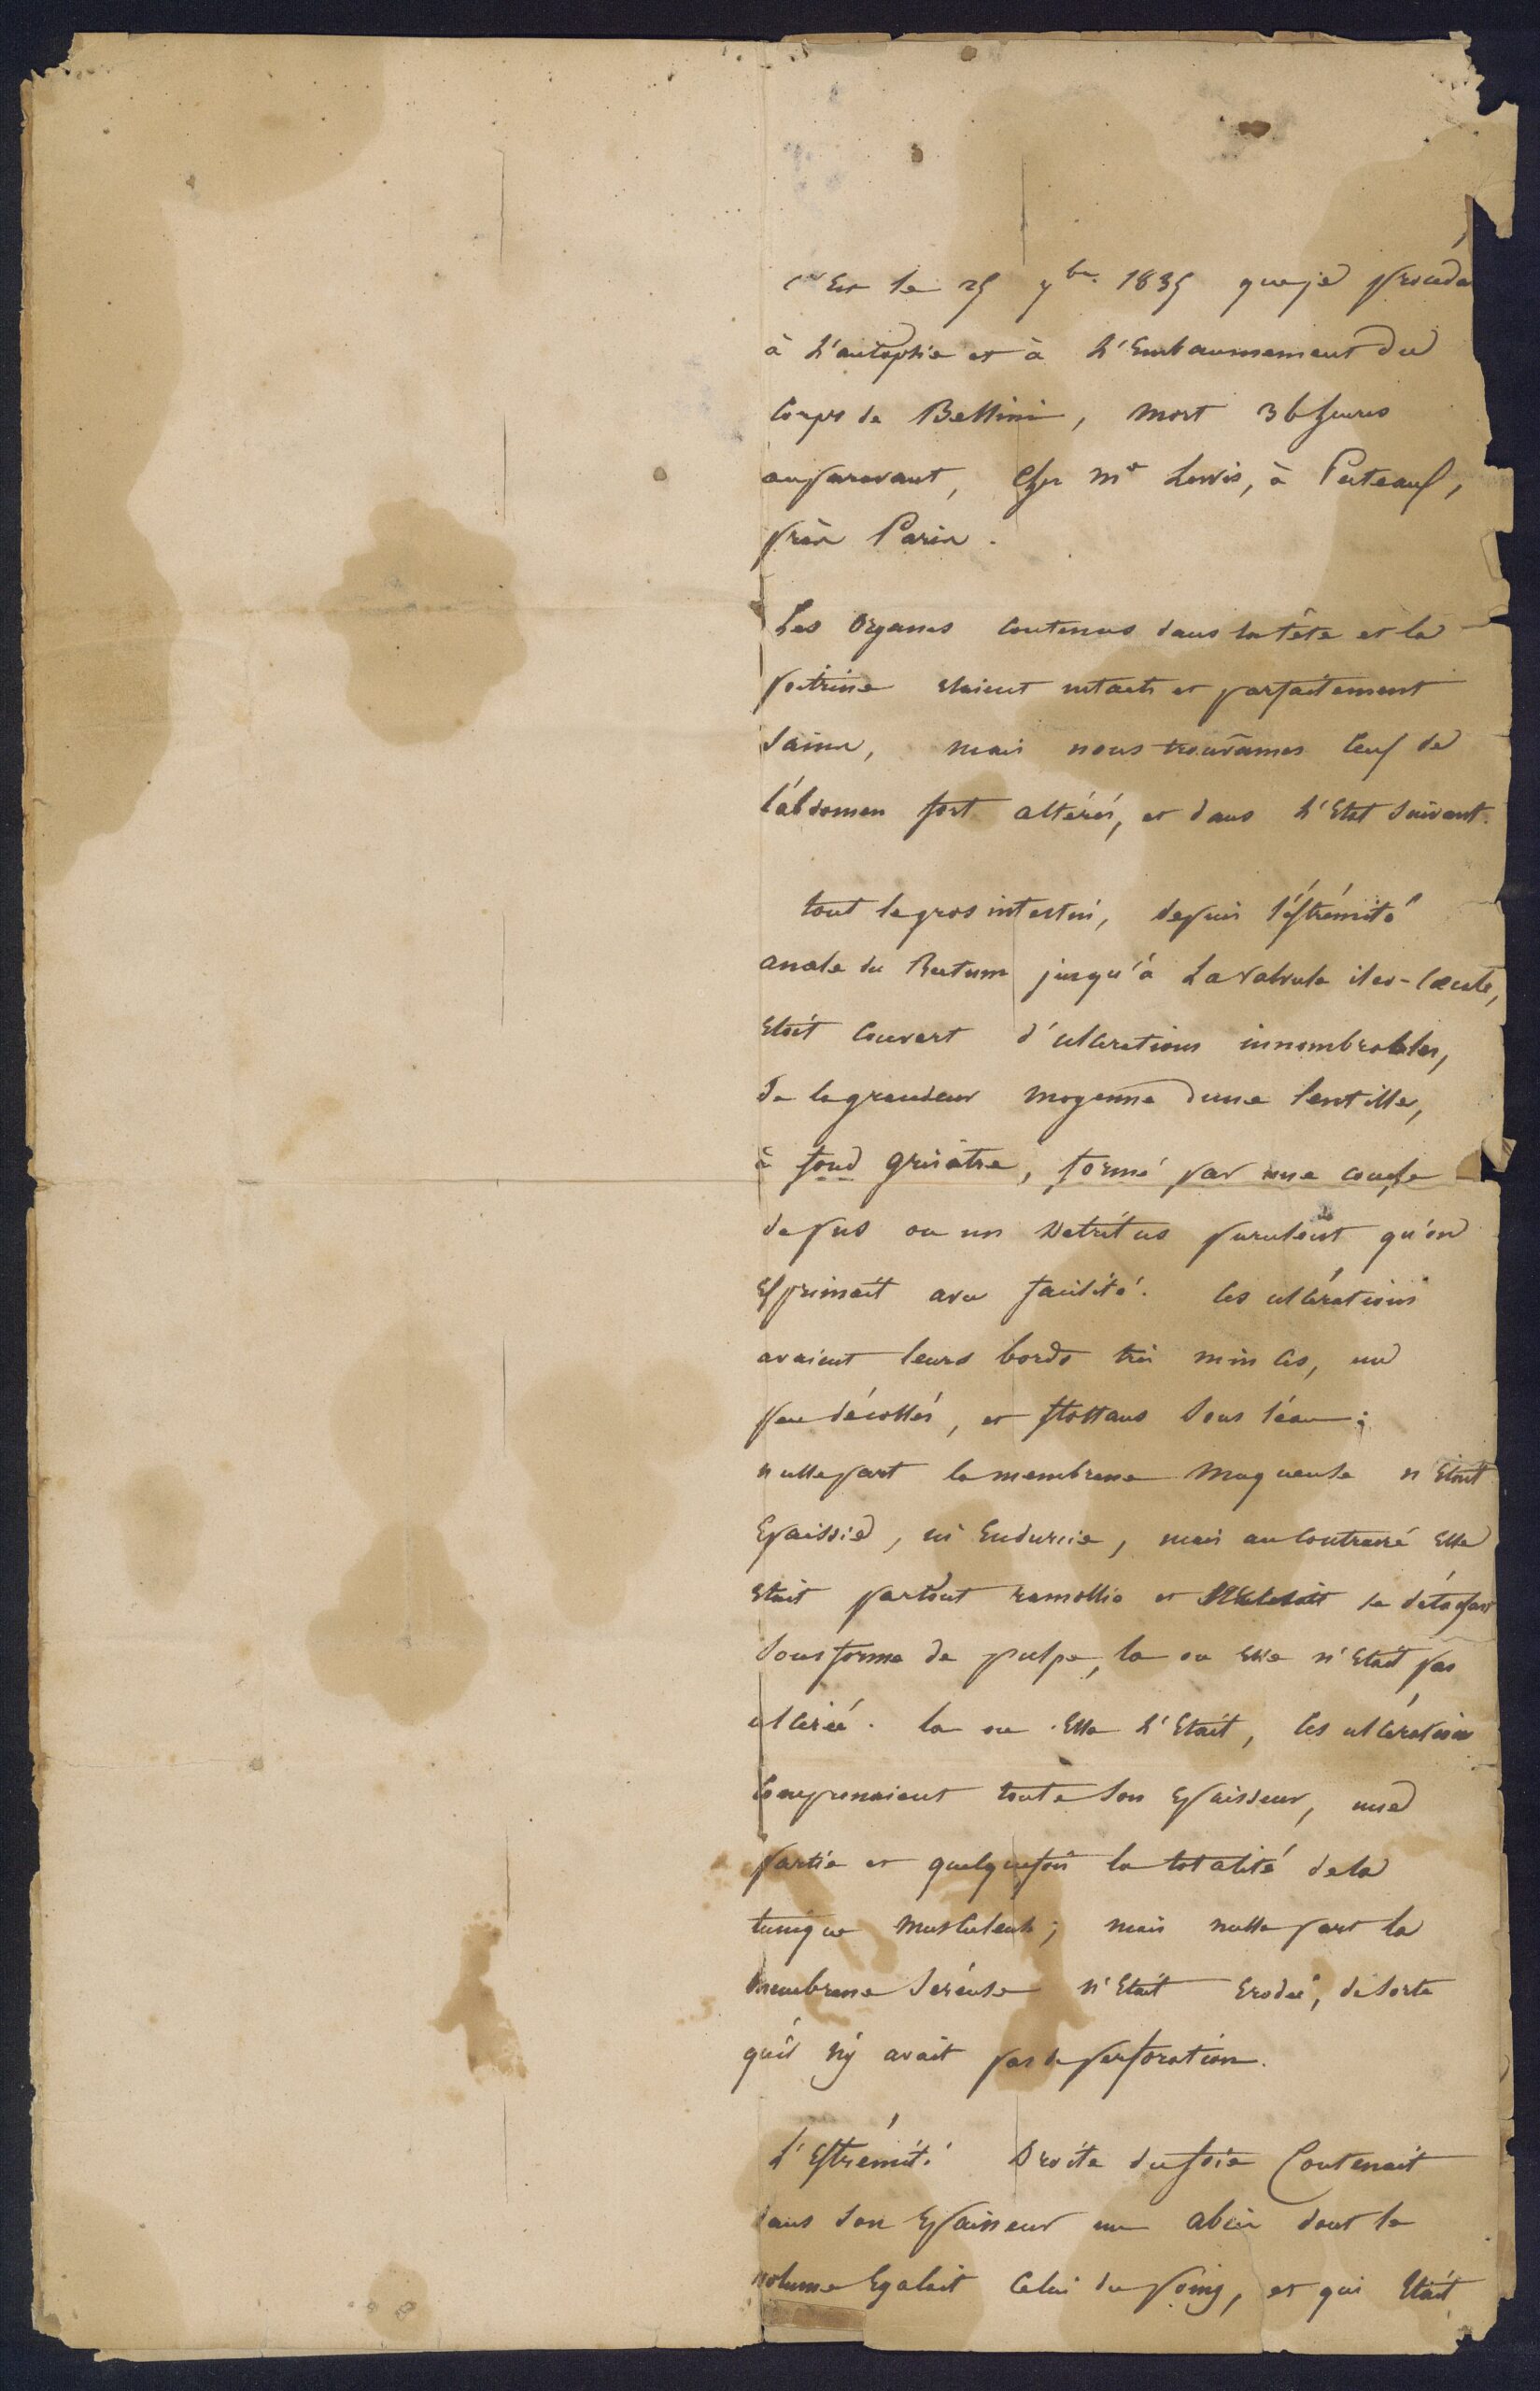 C'est le 25 7bre 1835 que je procédai
à L'autopsie et à L'Embaumement du
Corps de Bellini, mort 36 heures
auparavant, chez Mr Lewis, à Puteaux,
près Paris.
Les Organes contenus dans la tête et la
poitrine etaient intacts et parfaitement
sains, mais nous trouvâmes Ceux de
l'abdomen fort altérés, et dans L'Etat suivant.
tout le gros intestin, depuis l'éxtrémité
anale du Rectum jusqu'à La valvule iléo-Cœcale,
etait Couvert d'ulcerations innombrables,
de la grandeur moyenne d'une lentille,
à fond grisâtre, formé par une couche
de pus ou un Detritus purulent qu'on
Exprimait avec facilité. Ces ulcérations
avaient leurs bords très minces, un
peu décollés, et flottans Sous l'eau;
nulle part la membrane muqueuse n'était
Epaissie, ni Endurcie, mais au Contraire Elle
etait partout ramollie et se détachait
Sous forme de pulpe, la ou Elle n'Etait pas
ulcerée. la ou Elle L'Etait, les ulcérations
Comprenaient toute Son Epaisseur, une
partie et quelquefois la totalité de la
tunique musculeuse; mais nulle part la
membrane Séreuse n'Etait Erodée, de Sorte
qu'il n'y avait pas de perforation.
L'Extrémité Droite du foie Contenait
dans Son Epaisseur un abcès dont le
volume Egalait Celui du poing, et qui Etait